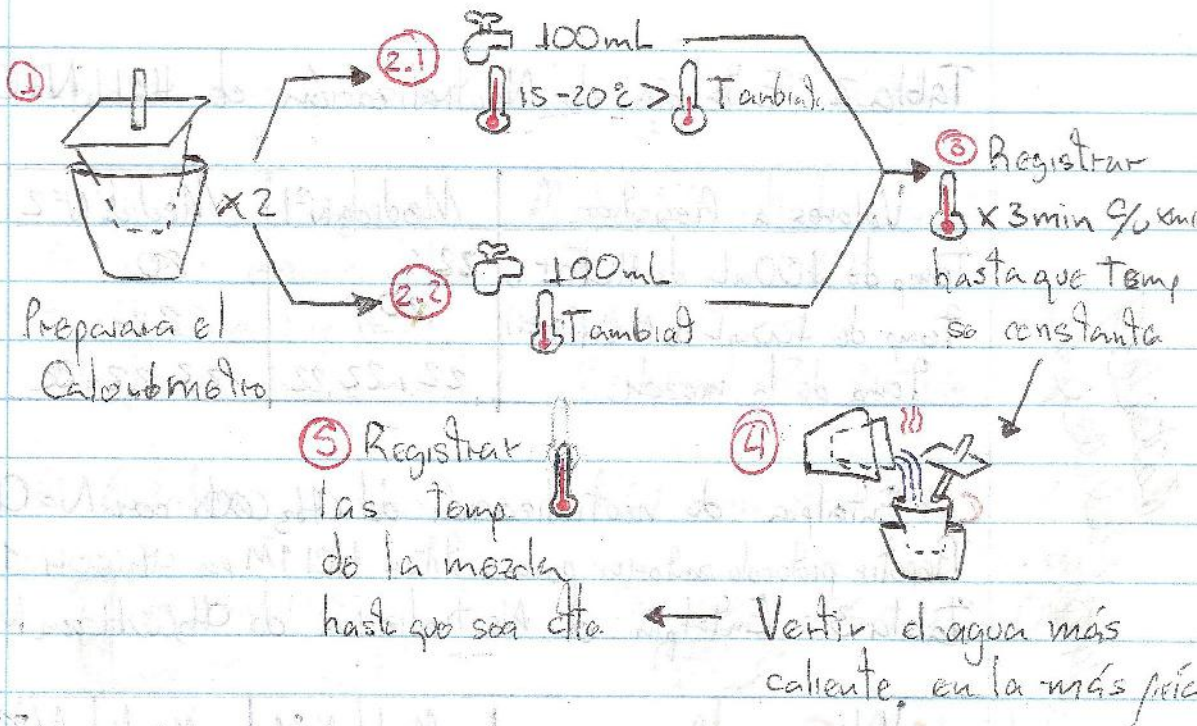 ①
x2
Preparara el
Calorímetro
2.1 100mL
15-20°C > Tambiat.
2.2 100mL
Tambiat
③ Registrar
x 3min c/u xmi
hasta que Temp
se constanta
④
Vertir el água más
caliente, en la más fría
⑤ Registrar
las temp.
de la mezcla
hasta que sea ctte.